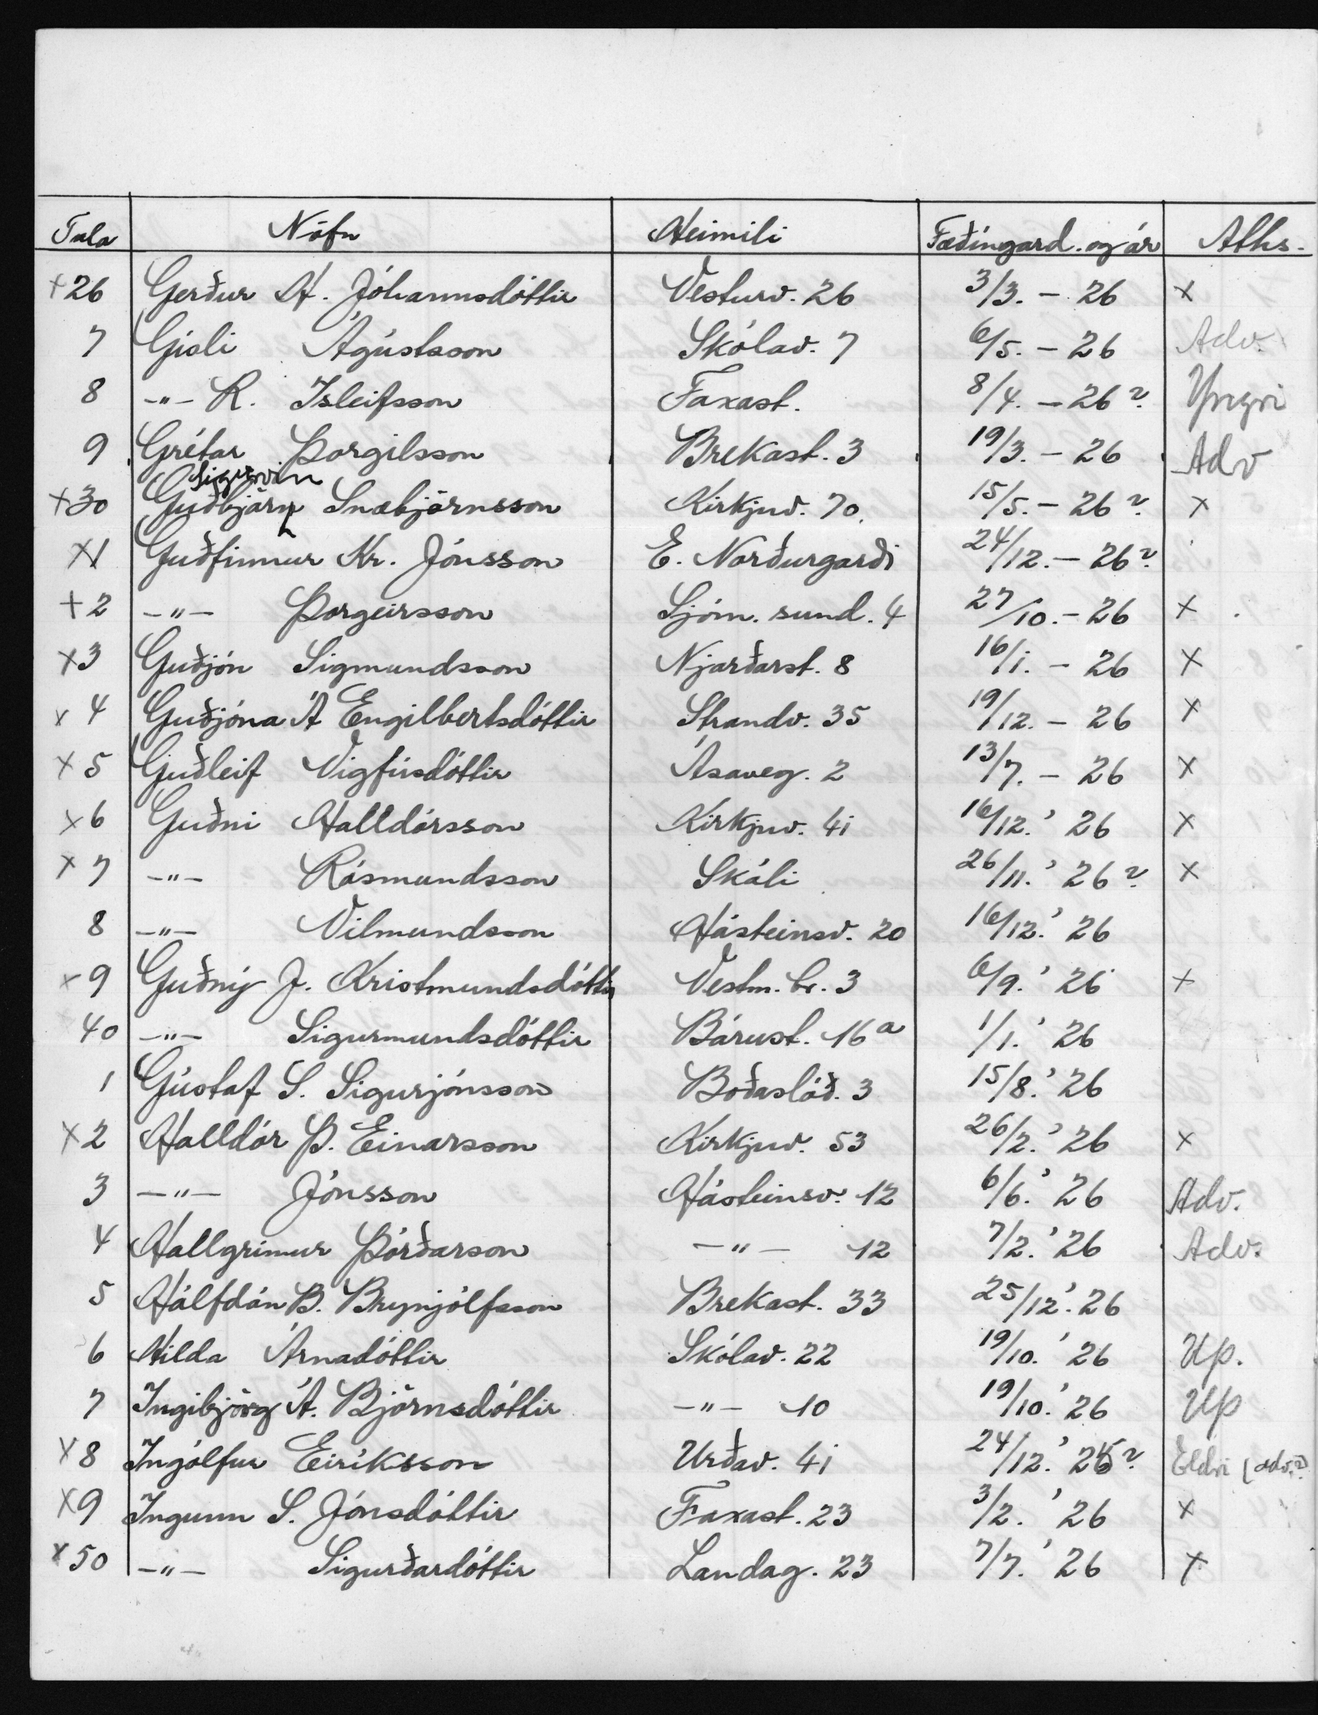 Tala Nöfn Heimili Fæðingard. og ár Aths.
+26 Gerður H. Jóhannsdóttir Vesturv. 26 3/3. – 26 x
7 Gísli Ágústsson Skólav. 7 6/5. – 26 Adv.
8 –"– R. Ísleifsson Faxast. 8/4. – 26 ? Yngri
9 Grétar Þorgilsson Brekast. 3 19/3. – 26 Adv
Sigurvin
+30 Guðbjörn Snæbjörnsson Kirkjuv. 70. 15/5. – 26 ? x
x1 Guðfinnur Kr. Jónsson E. Norðurgarði 24/12. – 26 ?
+2 –"– Þorgeirsson Sjóm. sund. 4 27/10. – 26 x
x3 Guðjón Sigmundsson Njarðarst. 8 16/1. – 26 x
x 4 Guðjóna Á Engilbertsdóttir Strandv. 35 19/12. – 26 x
x 5 Guðleif Vigfúsdóttir Ásaveg. 2 13/7. – 26 x
x 6 Guðni Halldórsson Kirkjuv. 41 16/12.' 26 x
x 7 –"– Rósmundsson Skáli 26/11.' 26 ? x
8 –"– Vilmundsson Hásteinsv. 20 16/12.' 26
x 9 Guðný J. Kristmundsdóttir Vestm. br. 3 6/9.' 26 x
40 –"– Sigurmundsdóttir Bárust. 16a 1/1.' 26
1 Gústaf S. Sigurjónsson Boðaslóð. 3 15/8.' 26
x 2 Halldór Þ. Einarsson Kirkjuv. 53 26/2.' 26 x
3 –"– Jónsson Hásteinsv. 12 6/6.' 26 Adv.
4 Hallgrímur Þórðarson –"– 12 7/2.' 26 Adv.
5 Hálfdán B. Brynjólfsson Brekast. 33 25/12'. 26
6 Hilda Árnadóttir Skólav. 22 19/10.' 26 Up.
7 Ingibjörg Á. Björnsdóttir –"– 10 19/10.' 26 Up
x 8 Ingólfur Eiríksson Urðav. 41 24/12.' 25 ? Eldri (adv.?)
x9 Ingunn S. Jónsdóttir Faxast. 23 3/2.' 26 x
x 50 –"– Sigurðardóttir Landag. 23 7/7.' 26 x